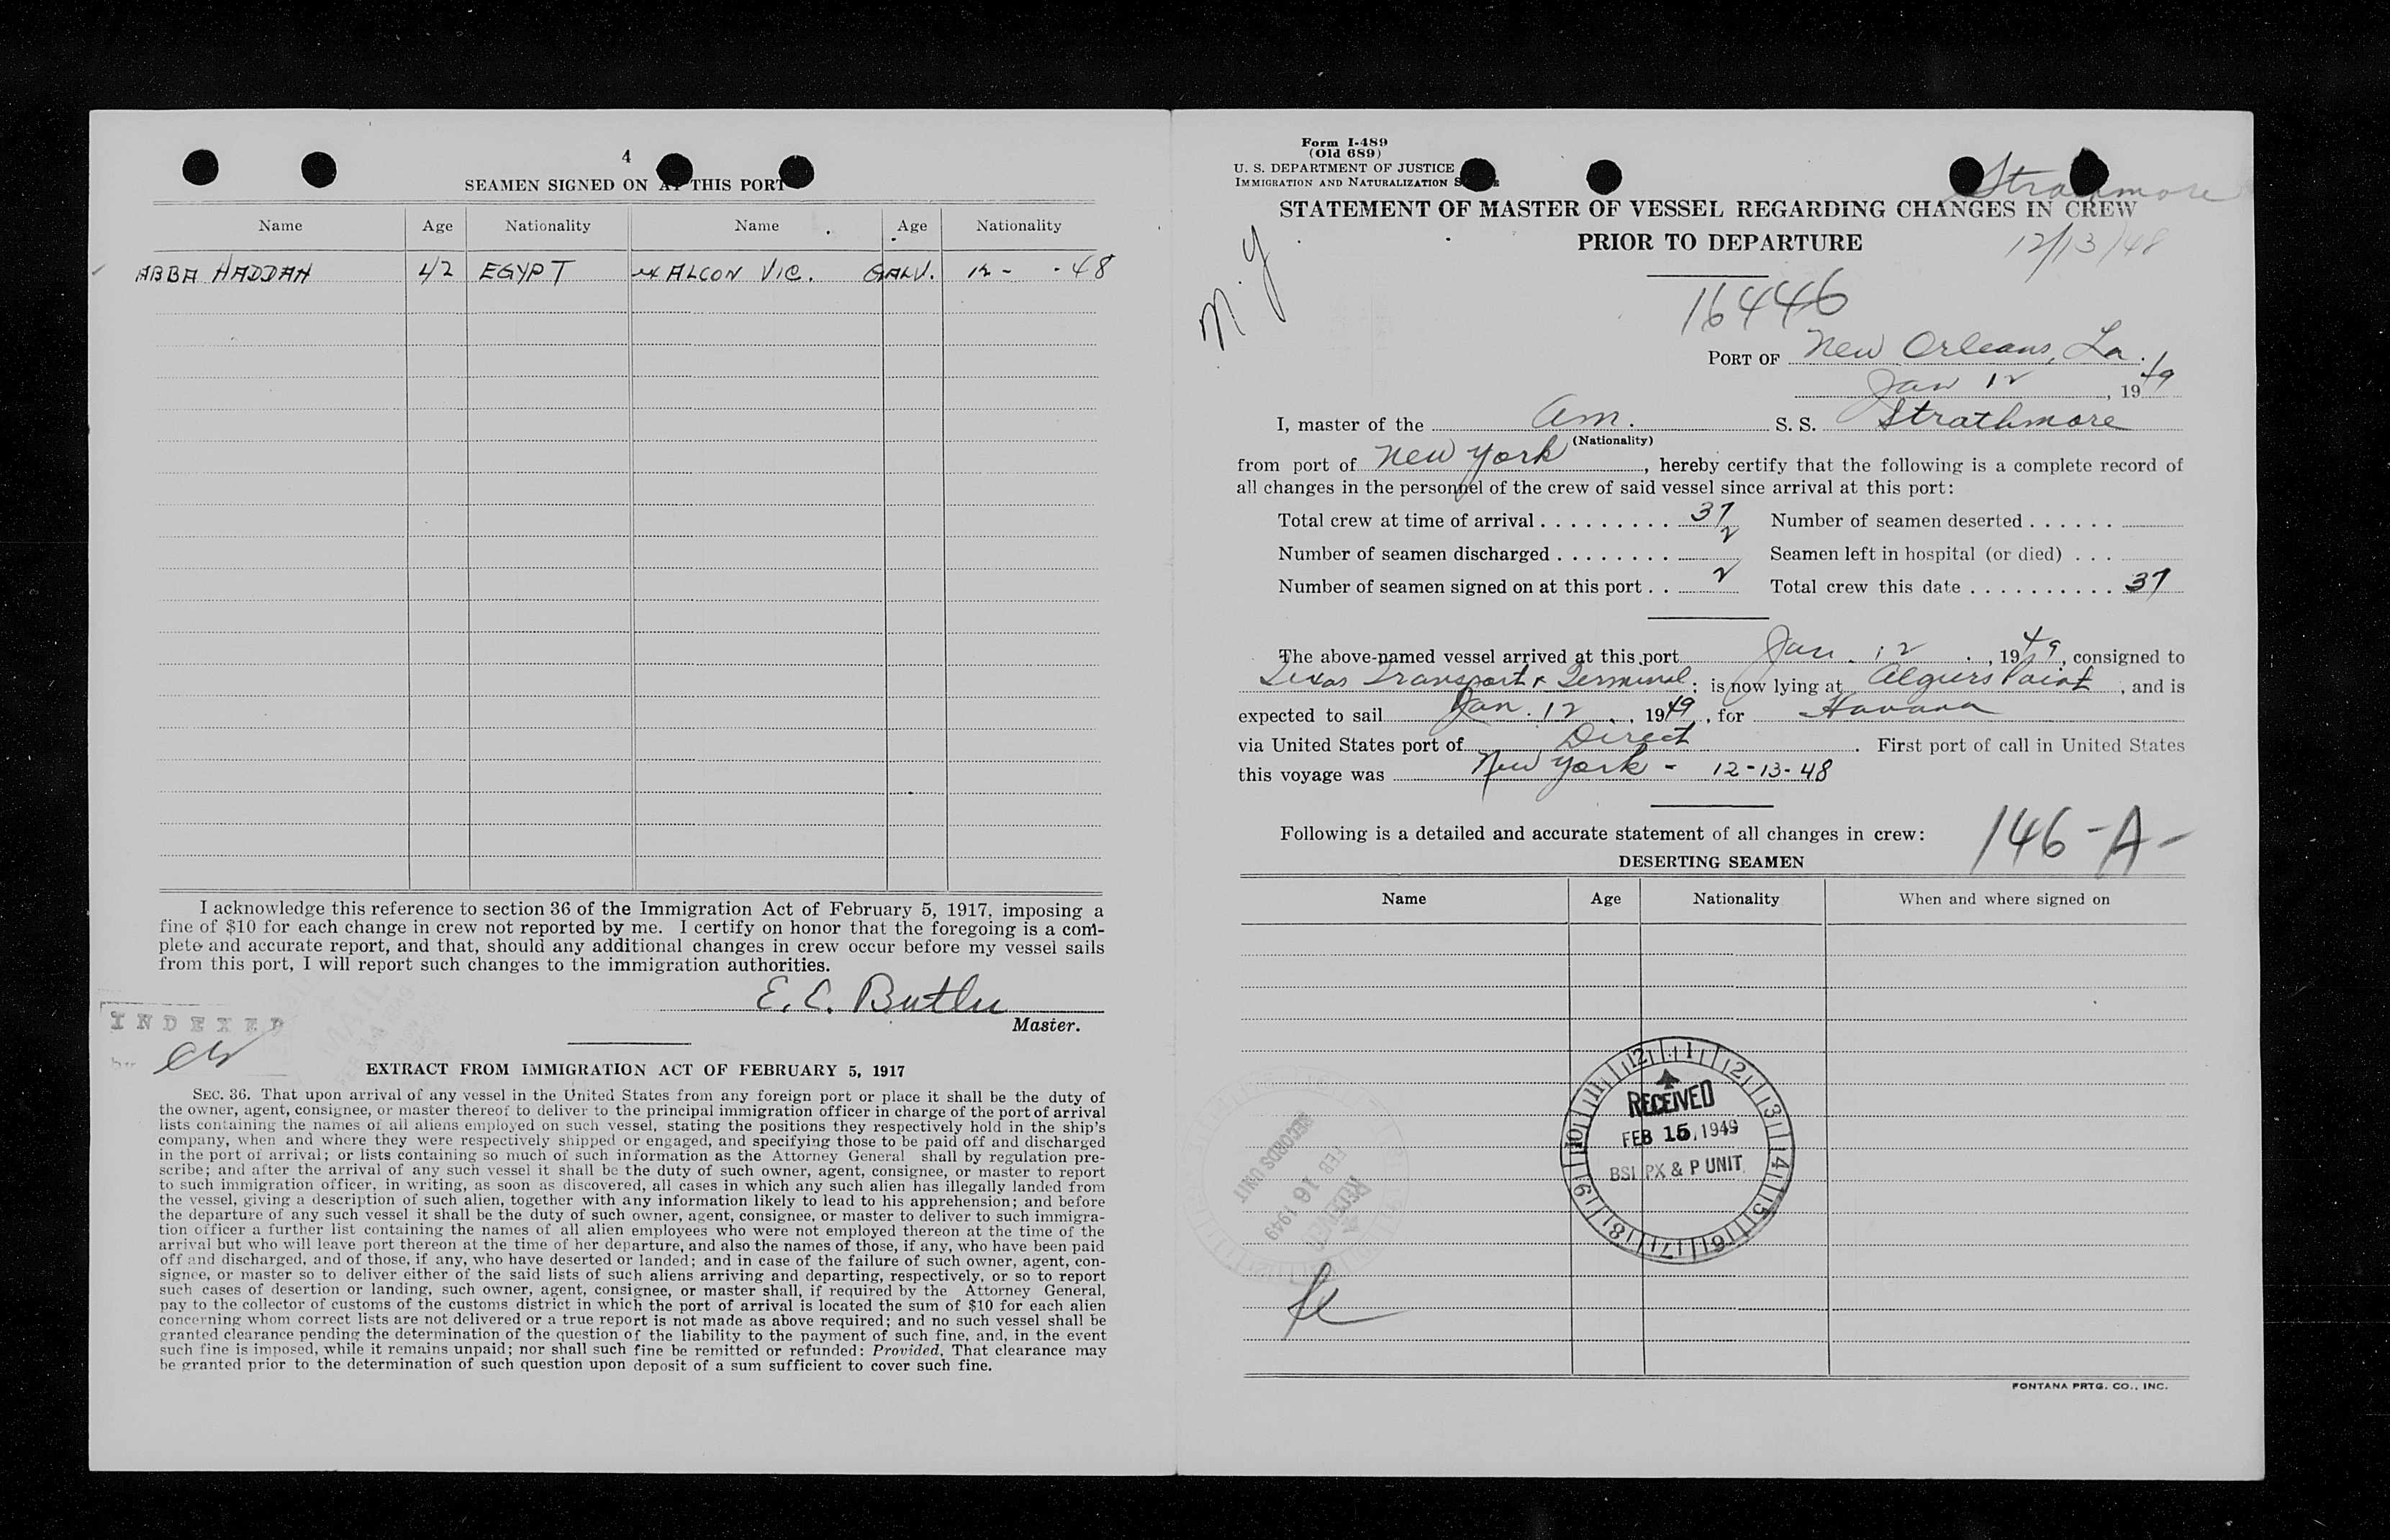 4
SEAMEN SIGNED ON AT THIS PORT
Name Age Nationality Name Age Nationality
ABBA HADDAH 42 EGYPT ex ALCON VIC. GALV. 12- -48
I acknowledge this reference to section 36 of the Immigration Act of February 5, 1917, imposing a
fine of $10 for each change in crew not reported by me. I certify on honor that the foregoing is a com-
plete and accurate report, and that, should any additional changes in crew occur before my vessel sails
from this port, I will report such changes to the immigration authorities.
E. C. Butler
Master.
INDEXED
EXTRACT FROM IMMIGRATION ACT OF FEBRUARY 5, 1917
SEC. 36. That upon arrival of any vessel in the United States from any foreign port or place it shall be the duty of
the owner, agent, consignee, or master thereof to deliver to the principal immigration officer in charge of the port of arrival
lists containing the names of all aliens employed on such vessel, stating the positions they respectively hold in the ship's
company, when and where they were respectively shipped or engaged, and specifying those to be paid off and discharged
in the port of arrival; or lists containing so much of such information as the Attorney General shall by regulation pre-
scribe; and after the arrival of any such vessel it shall be the duty of such owner, agent, consignee, or master to report
to such immigration officer, in writing, as soon as discovered, all cases in which any such alien has illegally landed from
the vessel, giving a description of such alien, together with any information likely to lead to his apprehension; and before
the departure of any such vessel it shall be the duty of such owner, agent, consignee, or master to deliver to such immigra-
tion officer a further list containing the names of all alien employees who were not employed thereon at the time of the
arrival but who will leave port thereon at the time of her departure, and also the names of those, if any, who have been paid
off and discharged, and of those, if any, who have deserted or landed; and in case of the failure of such owner, agent, con-
signee, or master so to deliver either of the said lists of such aliens arriving and departing, respectively, or so to report
such cases of desertion or landing, such owner, agent, consignee, or master shall, if required by the Attorney General,
pay to the collector of customs of the customs district in which the port of arrival is located the sum of $10 for each alien
concerning whom correct lists are not delivered or a true report is not made as above required; and no such vessel shall be
granted clearance pending the determination of the question of the liability to the payment of such fine, and, in the event
such fine is imposed, while it remains unpaid; nor shall such fine be remitted or refunded: Provided, That clearance may
be granted prior to the determination of such question upon deposit of a sum sufficient to cover such fine.
Form I-489
(Old 689)
U. S. DEPARTMENT OF JUSTICE
IMMIGRATION AND NATURALIZATION SERVICE
Strathmore
STATEMENT OF MASTER OF VESSEL REGARDING CHANGES IN CREW
PRIOR TO DEPARTURE
12/13/48
N.Y
16446
PORT OF New Orleans, La.
Jan 12, 1949
I, master of the Am. S. S. Strathmore
(Nationality)
from port of New York, hereby certify that the following is a complete record of
all changes in the personnel of the crew of said vessel since arrival at this port:
Total crew at time of arrival . . . . . . . . . 37 Number of seamen deserted . . . . . .
Number of seamen discharged . . . . . . . . 2 Seamen left in hospital (or died) . . .
Number of seamen signed on at this port . . 2 Total crew this date . . . . . . . . . . 37
The above-named vessel arrived at this port Jan. 12, 1949, consigned to
Texas Transport & Terminal; is now lying at Algiers Point, and is
expected to sail Jan. 12, 1949, for Havana
via United States port of Direct. First port of call in United States
this voyage was New York - 12-13-48
Following is a detailed and accurate statement of all changes in crew:
146-A-
DESERTING SEAMEN
Name Age Nationality When and where signed on
12 1 2 3 4 5 6 7 8 9 10 11
RECEIVED
FEB 15, 1949
BSI PX & P UNIT
RECEIVED
FEB 16 1949
RECORDS UNIT
FONTANA PRTG. CO., INC.